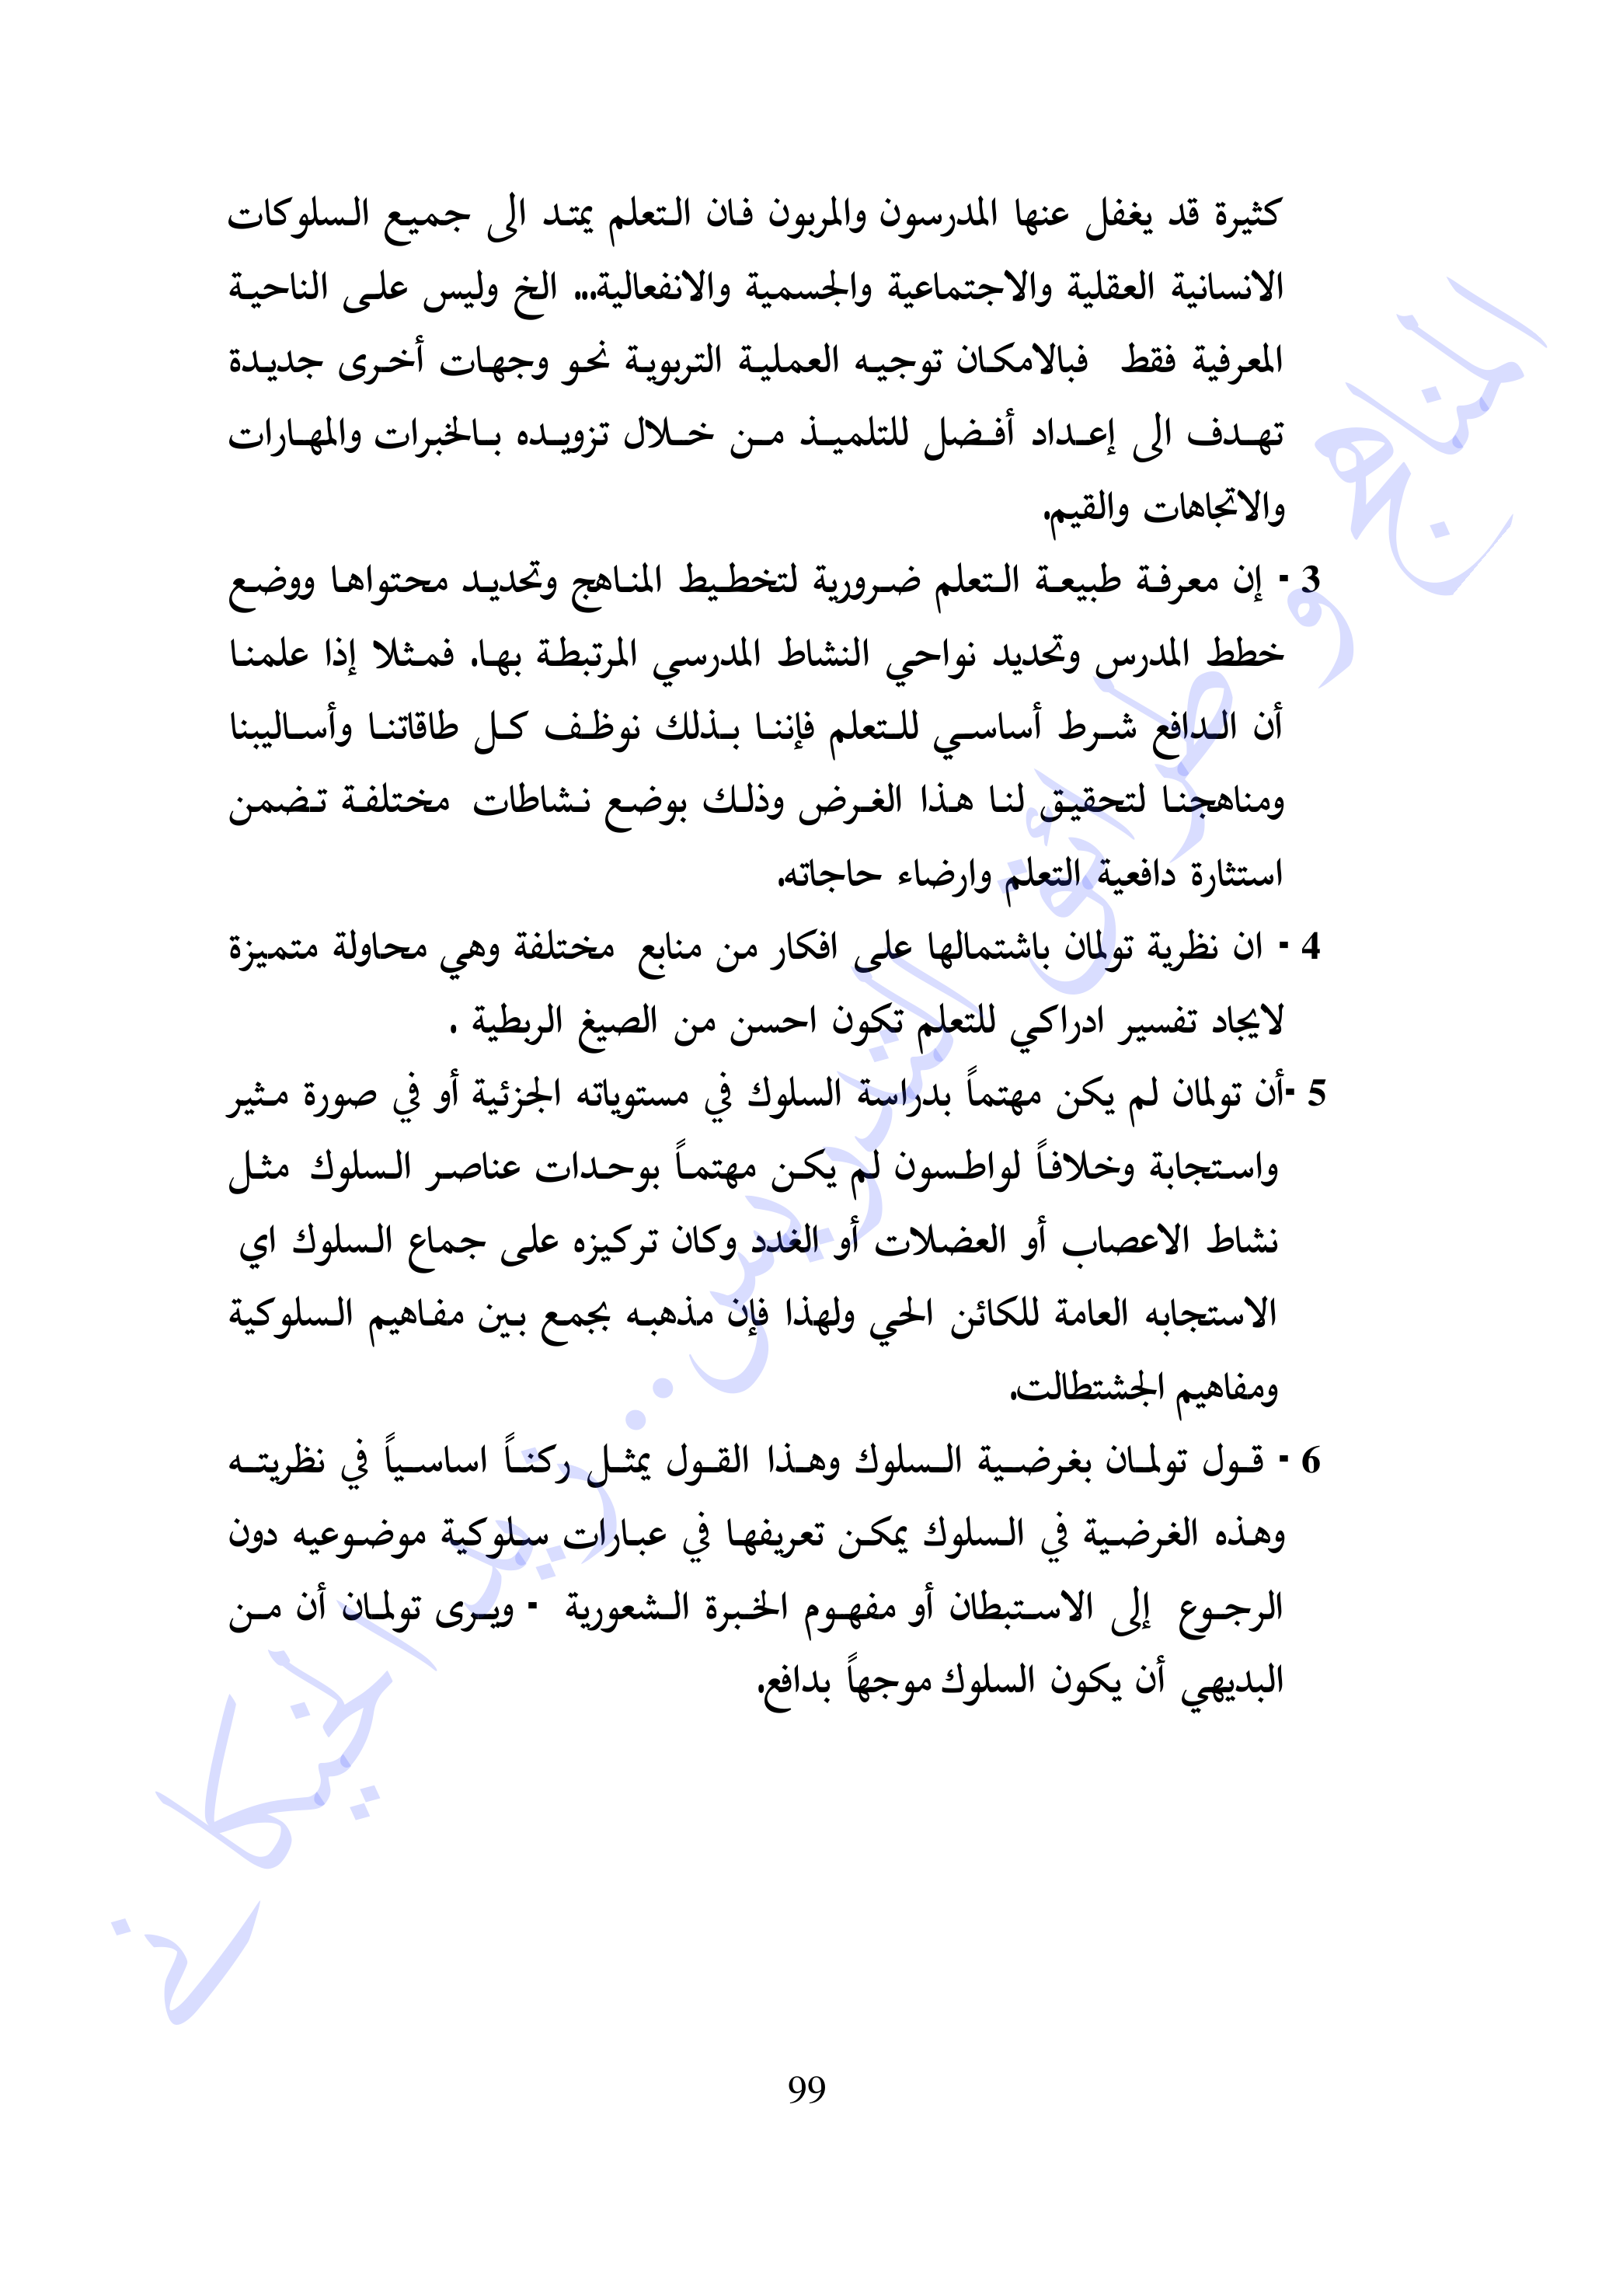 كثيرة قد يغفل عنها المدرسون والمربون فان التعلم يمتد الى جميع السلوكات
الانسانية العقلية والاجتماعية والجسمية والانفعالية... الخ وليس على الناحية
المعرفية فقط فبالامكان توجيه العملية التربوية نحو وجهات أخرى جديدة
تهدف الى إعداد أفضل للتلميذ من خلال تزويده بالخبرات والمهارات
والاتجاهات والقيم.
3 - إن معرفة طبيعة التعلم ضرورية لتخطيط المناهج وتحديد محتواها ووضع
خطط المدرس وتحديد نواحي النشاط المدرسي المرتبطة بها. فمثلا إذا علمنا
أن الدافع شرط أساسي للتعلم فإننا بذلك نوظف كل طاقاتنا وأساليبنا
ومناهجنا لتحقيق لنا هذا الغرض وذلك بوضع نشاطات مختلفة تضمن
استثارة دافعية التعلم وارضاء حاجاته.
4 - ان نظرية تولمان باشتمالها على افكار من منابع مختلفة وهي محاولة متميزة
لايجاد تفسير ادراكي للتعلم تكون احسن من الصيغ الربطية .
5 -أن تولمان لم يكن مهتماً بدراسة السلوك في مستوياته الجزئية أو في صورة مثير
واستجابة وخلافاً لواطسون لم يكن مهتماً بوحدات عناصر السلوك مثل
نشاط الاعصاب أو العضلات أو الغدد وكان تركيزه على جماع السلوك اي
الاستجابه العامة للكائن الحي ولهذا فإن مذهبه بجمع بين مفاهيم السلوكية
ومفاهيم الجشتطالت.
6 - قول تولمان بغرضية السلوك وهذا القول يمثل ركناً اساسياً في نظريته
وهذه الغرضية في السلوك يمكن تعريفها في عبارات سلوكية موضوعيه دون
الرجوع إلى الاستبطان أو مفهوم الخبرة الشعورية - ويرى تولمان أن من
البديهي أن يكون السلوك موجهاً بدافع.
المناهج و طرائق التدريس.. ريد الخيكانية
99